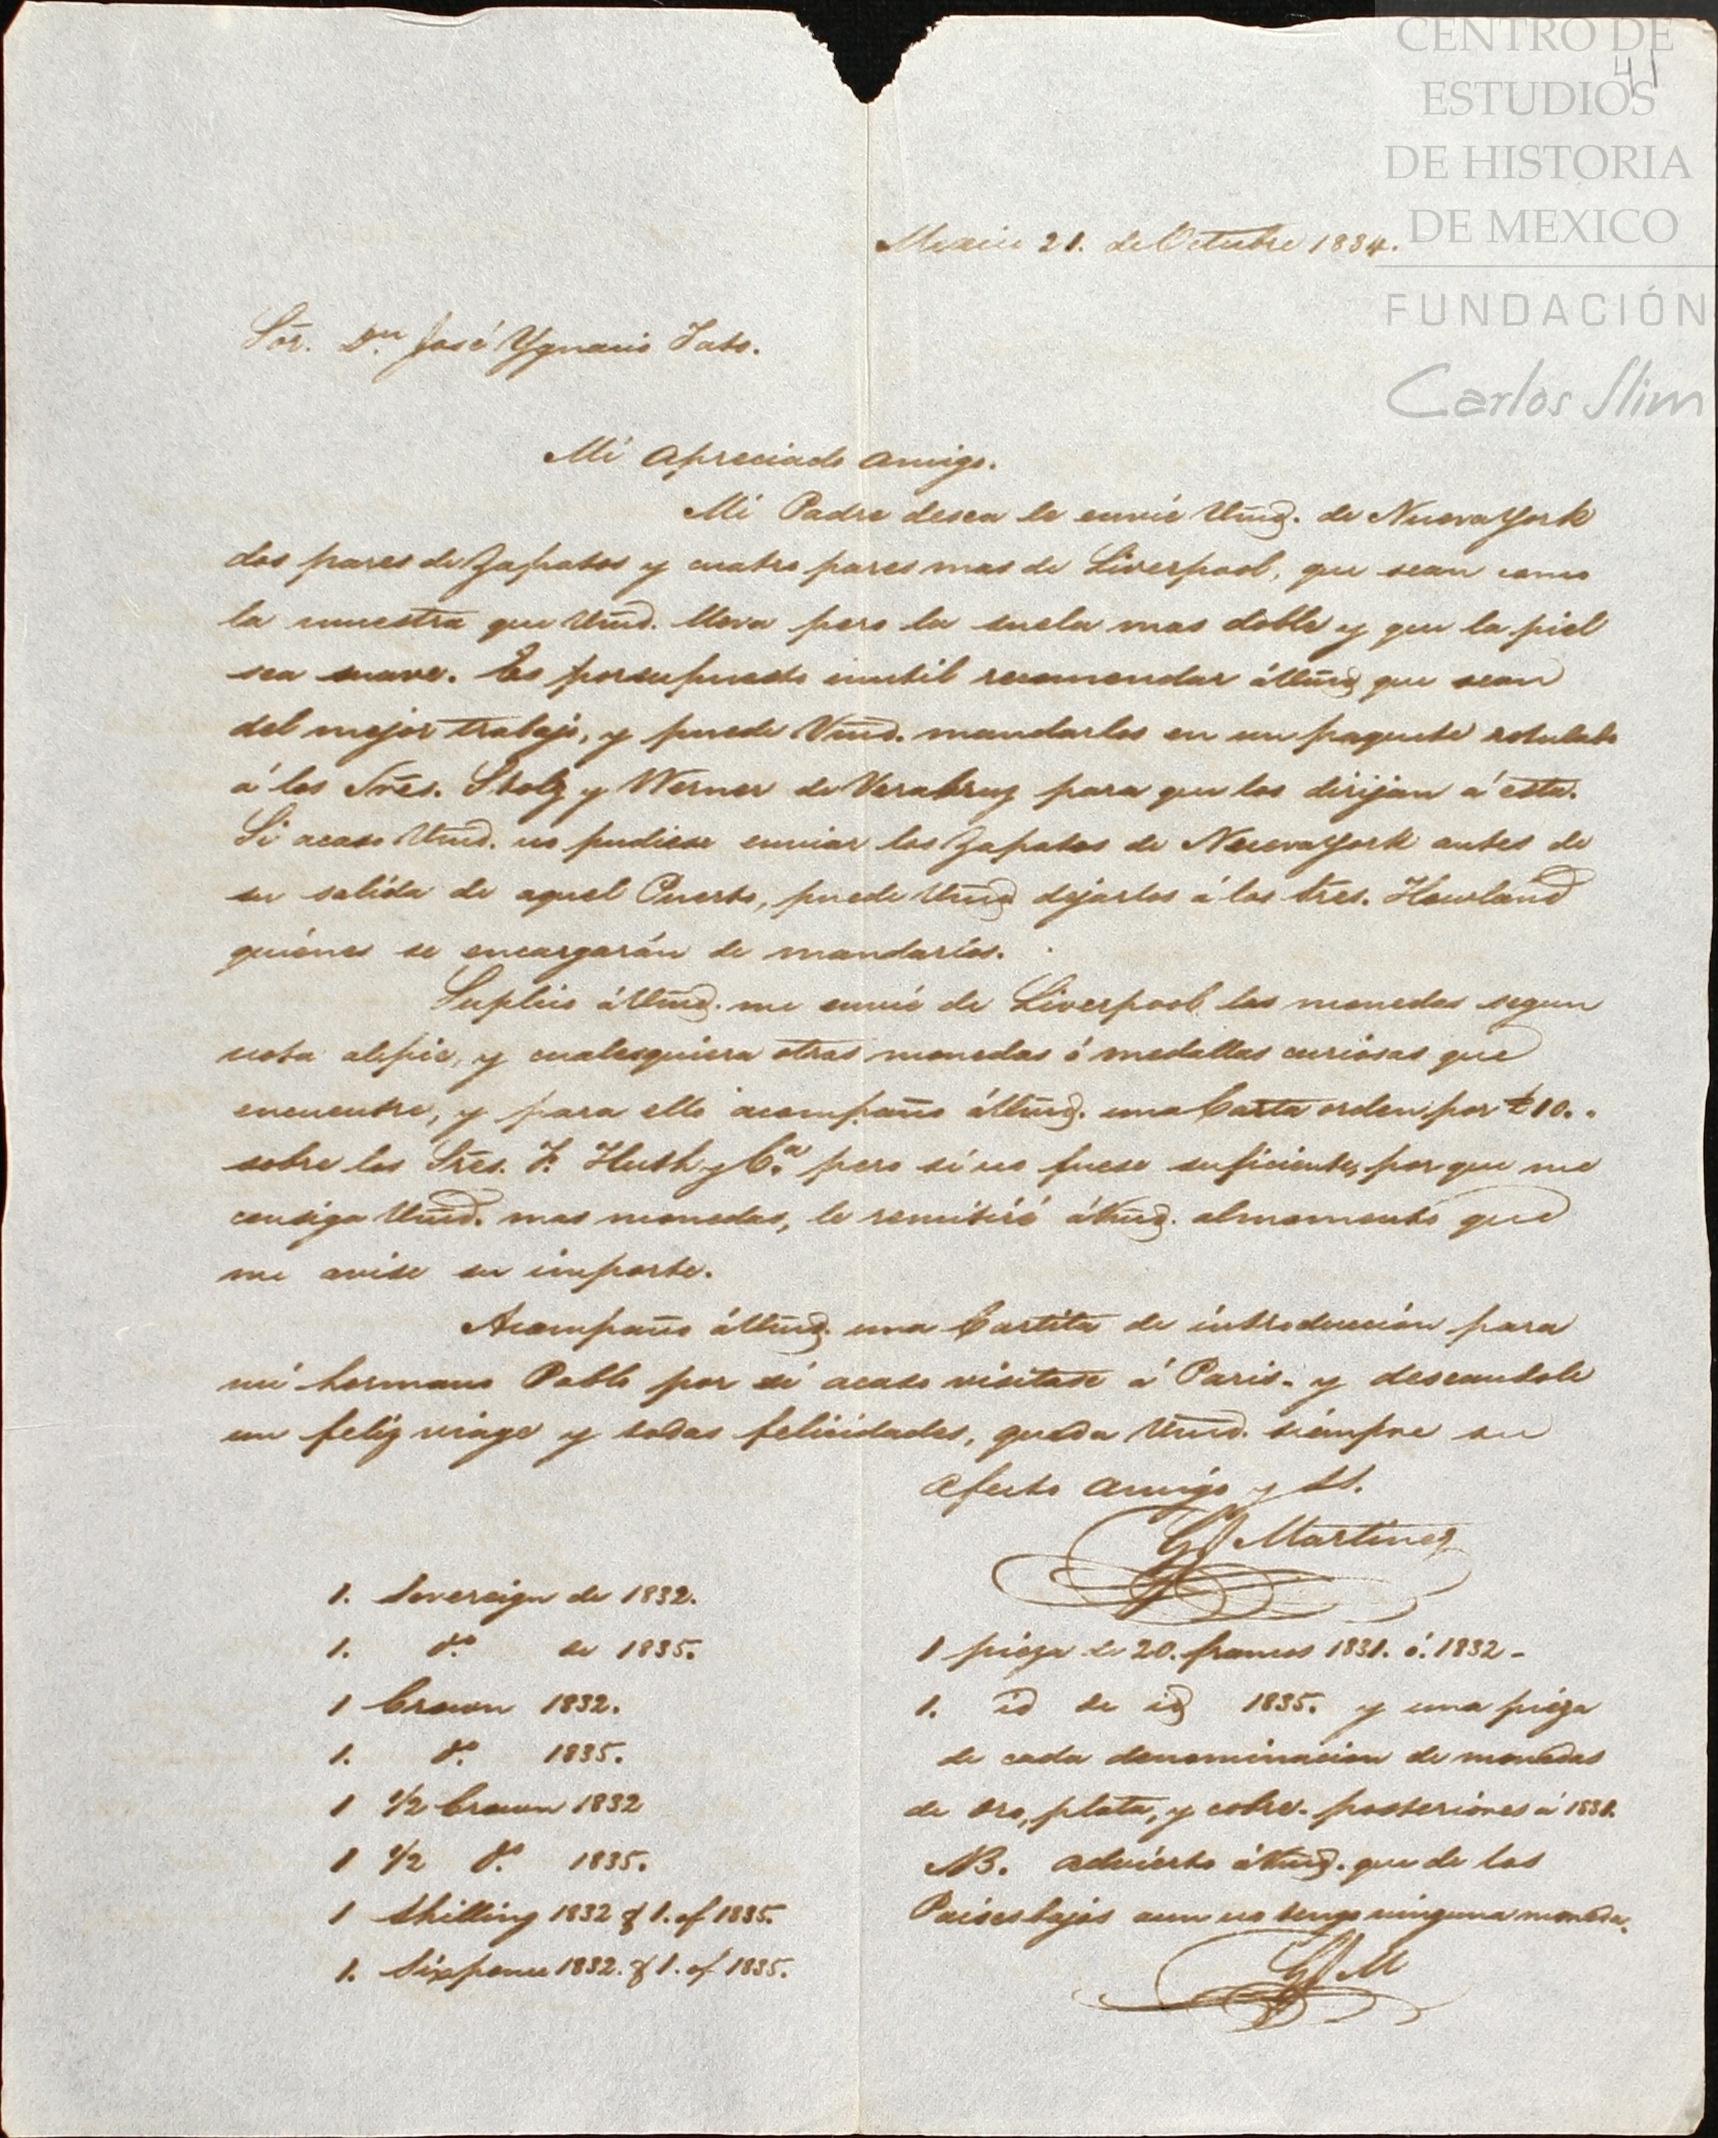 CENTRO DE
41
ESTUDIOS
DE HISTORIA
DE MEXICO
FUNDACIÓN
Carlos Slim
Mexico 21. de Octubre 1834.
Sör. Dn. José Ygnacio
Mi apreciado amigo.
Mi Padre desea le envie Vmd. de Nueva York
dos pares de Zapatos y cuatro pares mas de Liverpool, que sean como
la muestra que Vmd. lleva pero la suela mas doble y que la piel
sea suave. Es porsupuesto inutil recomendar á Vmd que sean
del mejor trabajo, y puede Vmd. mandarlos en un paquete rotulado
á los Sres. Stolz y Werner de Vera Cruz para que los dirijan á esta.
Si acaso Vmd. no pudiese enviar los Zapatos de Nueva York antes de
su salida de aquel Puerto, puede Vmd dejarlos á los Sres. Howland
quiénes se encargarán de mandarlos.
Suplico á Vmd. me envié de Liverpool las monedas segun
nota alpie, y cualesquiera otras monedas ó medallas curiosas que
encuentre, y para ello acompaño á Vmd. una Carta orden por £10..
sobre los Sres. F. Huth y Ca. pero si no fuese suficiente, por que me
consiga Vmd. mas monedas, le remitiré á Vmd. almomento que
me avise su importe.
Acompaño á Vmd. una Cartita de introduccion para
mi hermano Pablo por si acaso visitase á Paris. y deseandole
un feliz viage y todas felicidades, queda Vmd. siempre su
afecto amigo y SS.
Martinez
1. Sovereign de 1832.
1. do. de 1835.
1 Crown 1832.
1. do. 1835.
1 1/2 Crown 1832
1 1/2 do. 1835.
1 Shilling 1832 & 1. of 1835.
1. Sixpence 1832. & 1. of 1835.
1 pieza de 20. francos 1831. ó. 1832 -
1. id de id 1835. y una pieza
de cada denominacion de monedas
de oro, plata, y cobre. posteriores á 1831.
NB. advierto á Vmd. que de los
Paises bajos aun no tengo ninguna moneda.